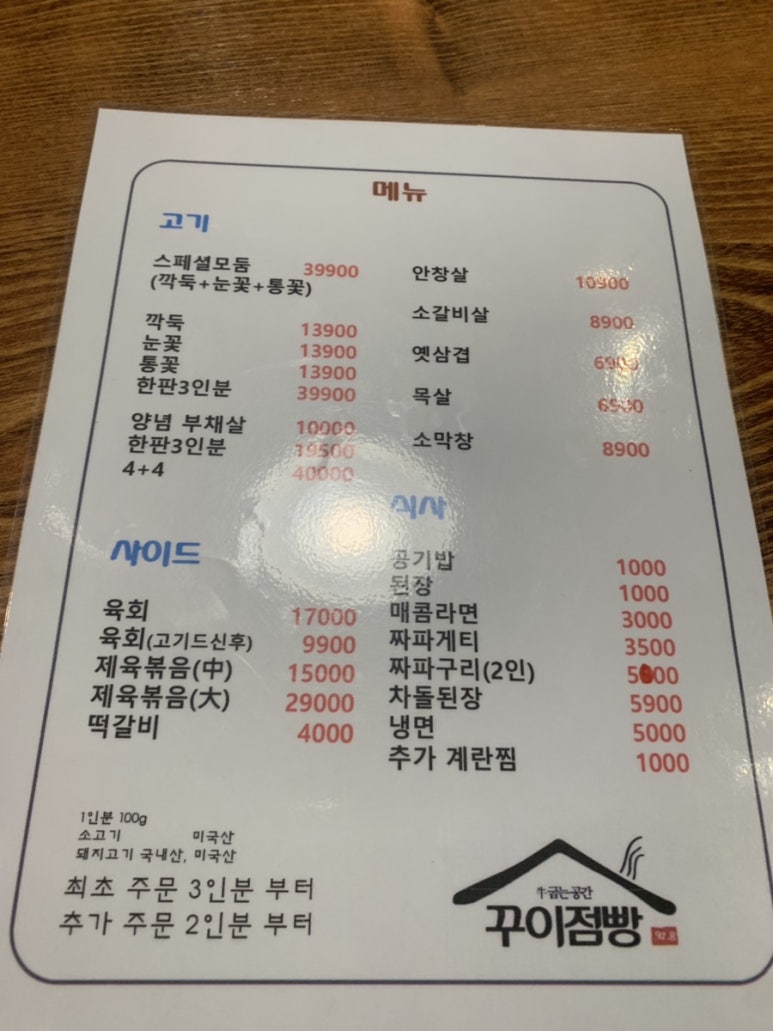 메뉴
고기
스페셜모둠 39900
(깍둑+눈꽃+통꽃)
깍둑 13900
눈꽃 13900
통꽃 13900
한판3인분 39900
양념 부채살 10000
한판3인분 19500
4+4 40000
안창살 10900
소갈비살 8900
옛삼겹 6900
목살 6900
소막창 8900
사이드
육회 17000
육회(고기드신후) 9900
제육볶음(中) 15000
제육볶음(大) 29000
떡갈비 4000
식사
공기밥 1000
된장 1000
매콤라면 3000
짜파게티 3500
짜파구리(2인)
차돌된장 5900
냉면 5000
추가 계란찜 1000
1인분 100g
소고기 미국산
돼지고기 국내산, 미국산
최초 주문 3인분 부터
추가 주문 2인분 부터
牛굽는공간
꾸이점빵